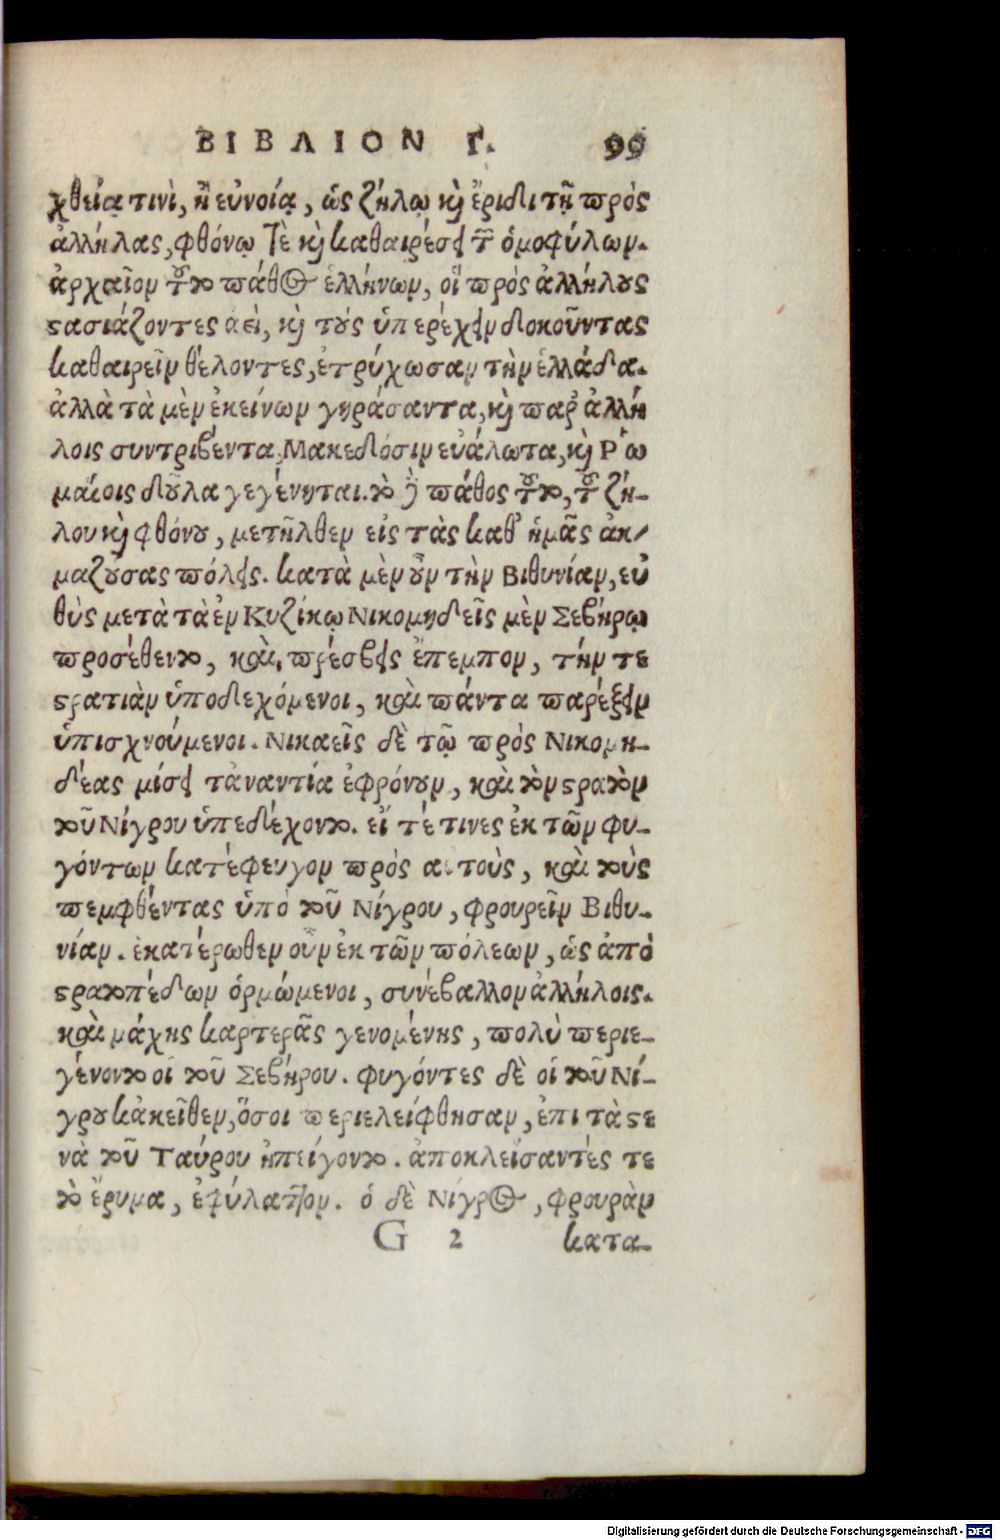 ΒΙΒΛΙΟΝ Γ. 99
χθείᾳ τινὶ, ἢ εὐνοίᾳ, ὡς ζήλῳ κὶ ἔριδι τῇ πρὸς
ἀλλήλας, φθόνῳ τὲ κὶ καθαιρέσει τῶν ὁμοφύλων.
ἀρχαῖον τοῦτο πάθος ἑλλήνων, οἳ πρὸς ἀλλήλους
στασιάζοντες ἀεὶ, κὶ τούς ὑπερέχειν δοκοῦντας
καθαιρεῖν θέλοντες, ἐτρύχωσαν τὴν ἑλλάδα.
ἀλλὰ τὰ μὲν ἐκείνων γηράσαντα, κὶ παρ' ἀλλή
λοις συντριβέντα, Μακεδόσιν εὐάλωτα, κὶ Ῥω
μαίοις δοῦλα γεγένηται. τὸ δὲ πάθος τοῦτο, τοῦ ζή-
λου κὶ φθόνου, μετῆλθεν εἰς τὰς καθ' ἡμᾶς ἀκ-
μαζούσας πόλεις. κατὰ μὲν οὖν τὴν Βιθυνίαν, εὐ
θὺς μετὰ τὰ ἐν Κυζίκῳ Νικομηδεῖς μὲν Σεβήρῳ
προσέθεντο, καὶ πρέσβεις ἔπεμπον, τήν τε
στρατιὰν ὑποδεχόμενοι, καὶ πάντα παρέξειν
ὑπισχνούμενοι. Νικαεῖς δὲ τῷ πρὸς Νικομη-
δέας μίσει τἀναντία ἐφρόνουν, καὶ τὸν στρατὸν
τοῦ Νίγρου ὑπεδέχοντο. εἴ τέ τινες ἐκ τῶν φυ-
γόντων κατέφευγον πρὸς αὐτοὺς, καὶ τοὺς
πεμφθέντας ὑπὸ τοῦ Νίγρου, φρουρεῖν Βιθυ-
νίαν. ἑκατέρωθεν οὖν ἐκ τῶν πόλεων, ὡς ἀπὸ
στρατοπέδων ὁρμώμενοι, συνέβαλλον ἀλλήλοις.
καὶ μάχης καρτερᾶς γενομένης, πολὺ περιε-
γένοντο οἱ τοῦ Σεβήρου. φυγόντες δὲ οἱ τοῦ Νί-
γρου κἀκεῖθεν, ὅσοι περιελείφθησαν, ἐπι τὰ στε
νὰ τοῦ Ταύρου ἠπείγοντο. ἀποκλείσαντές τε
τὸ ἔρυμα, ἐφύλαττον. ὁ δὲ Νίγρος, φρουρὰν
G 2 κατα-